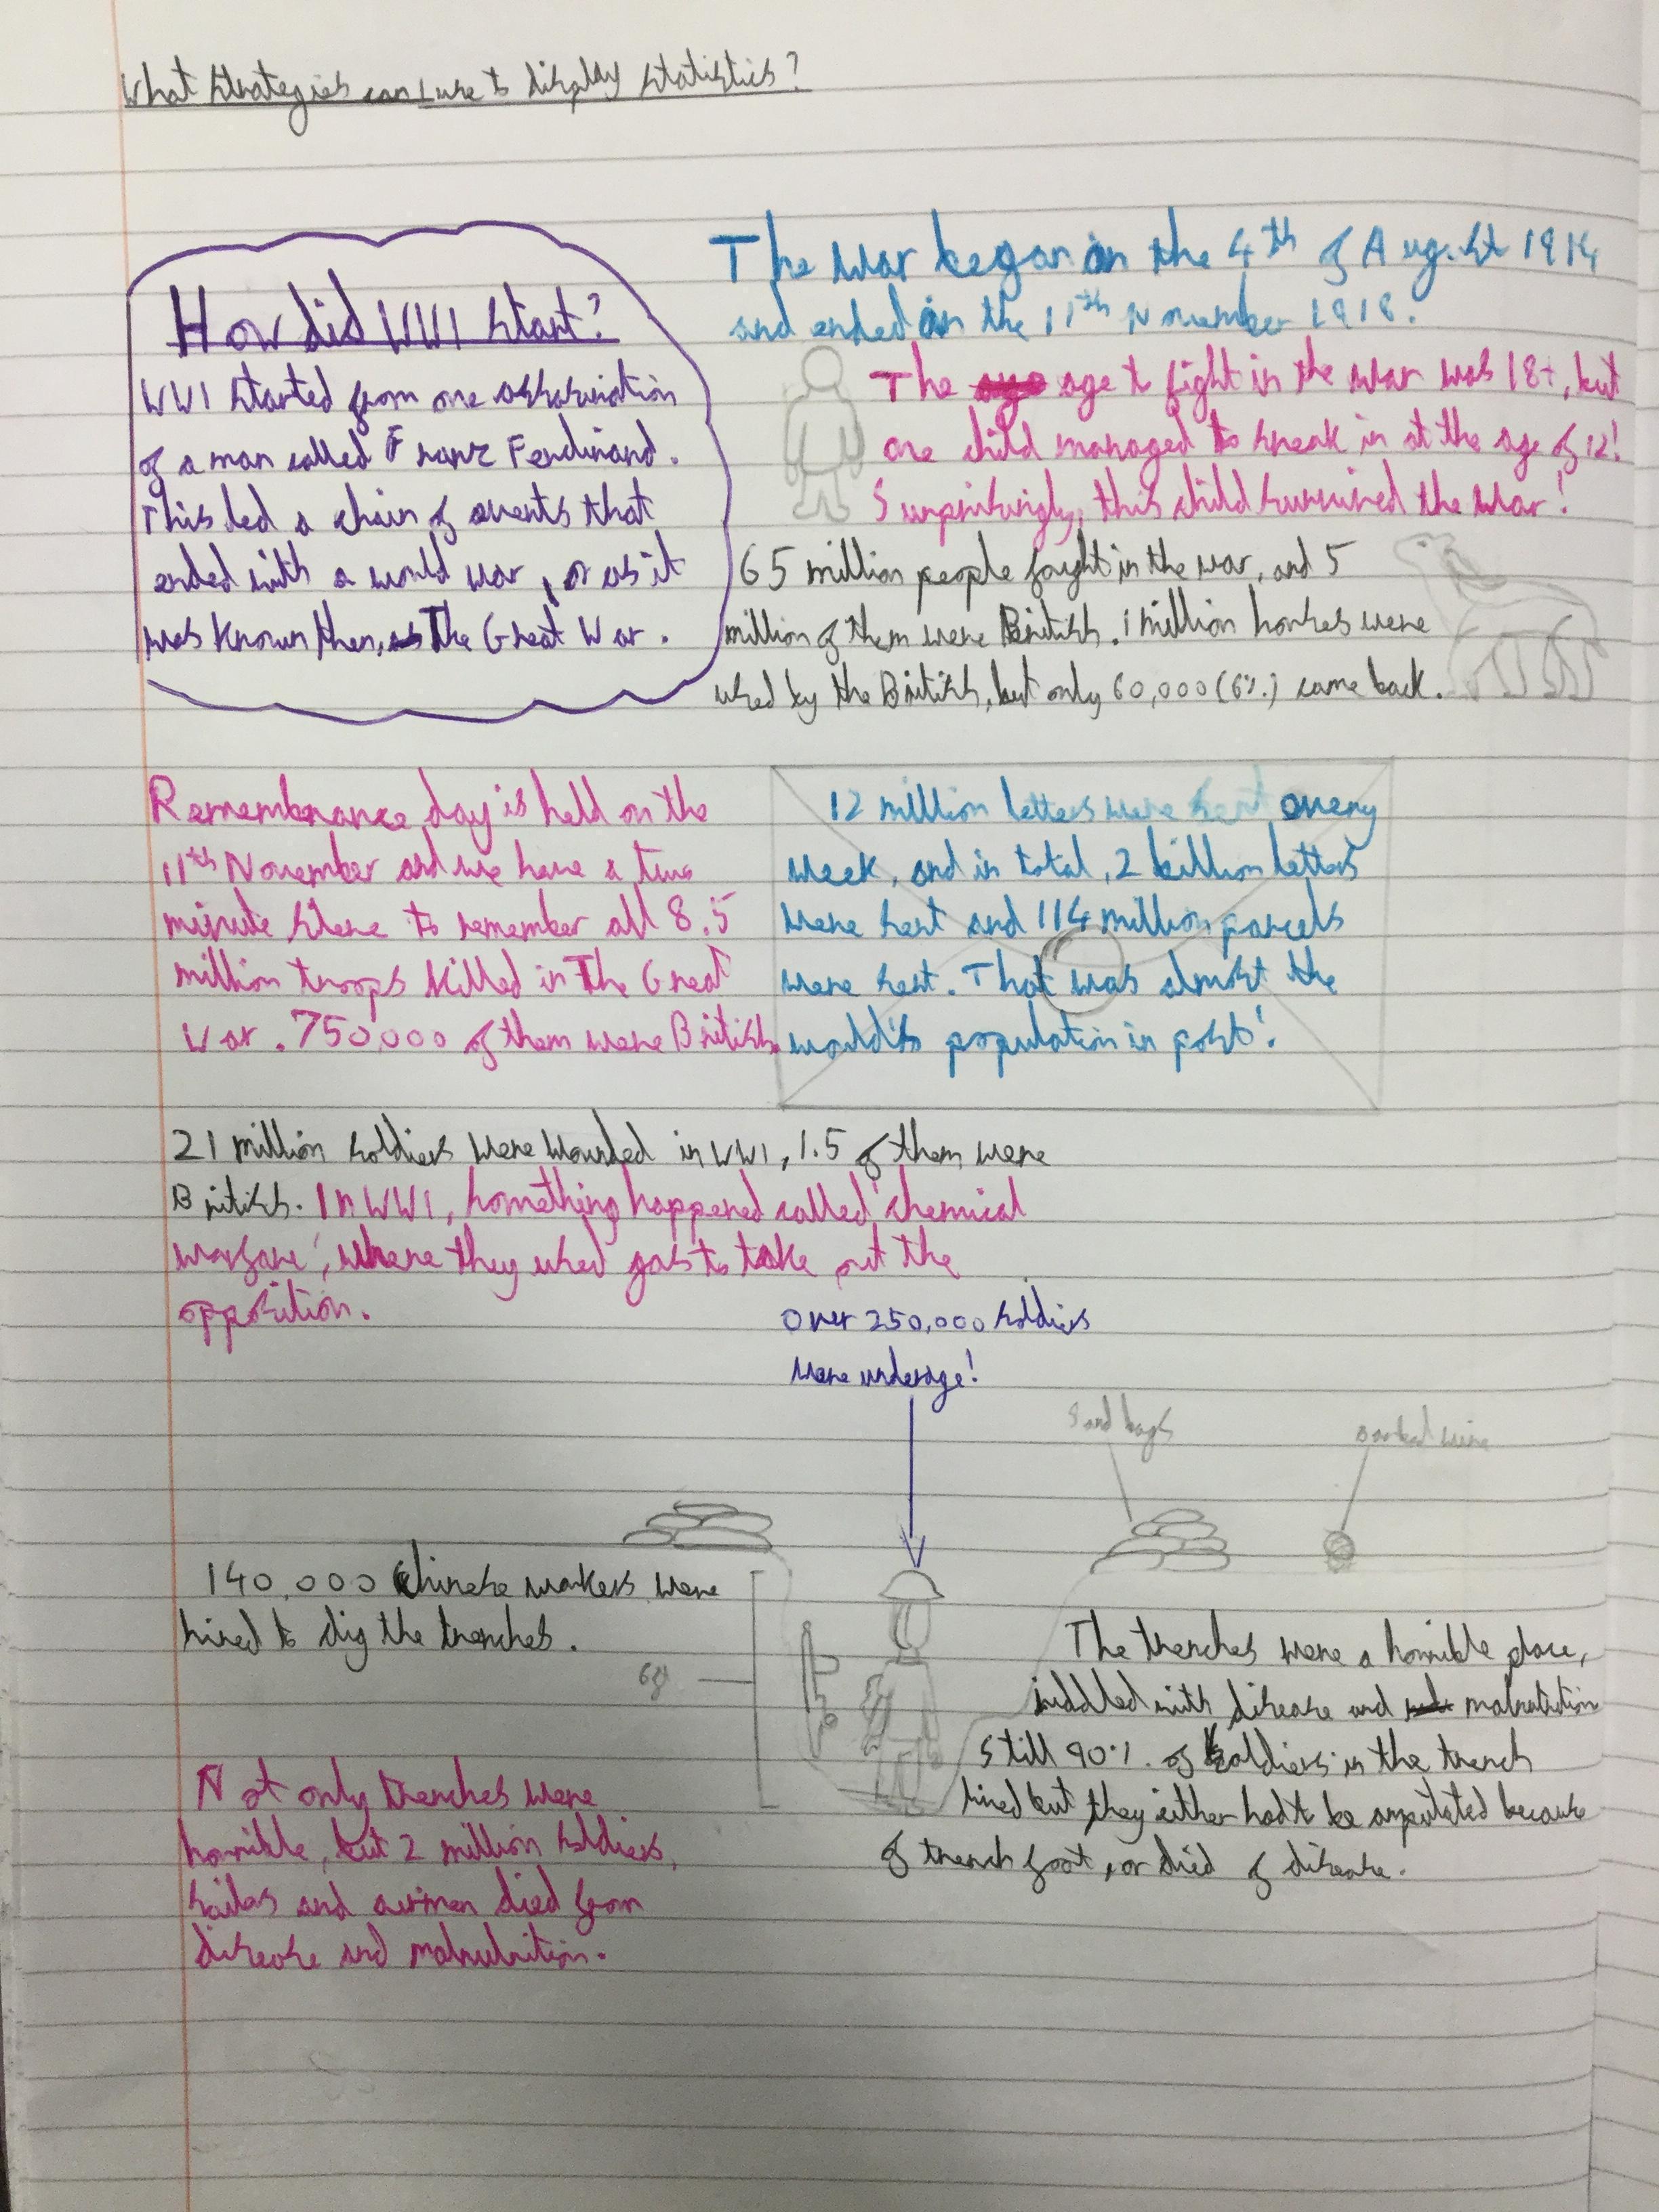 What strategies can I use to display statistics?
How did WW1 start?
WW1 started from one assassination
of a man called Franz Ferdinand.
This led a chain of events that
ended with a world war, or as it
was known then, The Great War.
The war began on the 4th of August 1914
and ended on the 11th November 1918.
The age to fight in the war was 18+, but
one child managed to sneak in at the age of 12!
Surprisingly, this child survived the war!
65 million people fought in the war, and 5
million of them were British. 1 million horses were
used by the British, but only 60,000 (6%) came back.
Remembrance day is held on the
11th November and we have a two
minute silence to remember all 8.5
million troops killed in The Great
War. 750,000 of them were British.
12 million letters were sent every
week, and in total, 2 billion letters
were sent and 114 million parcels
were sent. That was almost the
world's population in post!
21 million soldiers were wounded in WW1, 1.5 of them were
British. In WW1, something happened called 'chemical
warfare', where they used gas to take out the
opposition.
Over 250,000 soldiers
were underage!
Sand bags
Barbed wire
140,000 Chinese workers were
hired to dig the trenches.
The trenches were a horrible place,
riddled with disease and malnutrition
still 90% of soldiers in the trench
lived but they either had to be amputated because
of trench foot, or died of disease.
Not only trenches were
horrible, but 2 million soldiers,
sailors and airmen died from
disease and malnutrition.